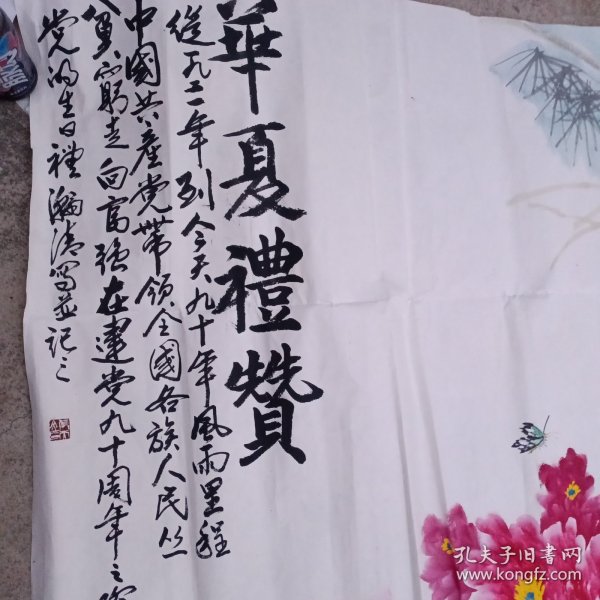 華夏禮贊
從一九二一年到今天九十年風雨里程
中國共産党帶领全國各族人民从
窮走向富强在建党九十周年之
党的生日禮 瀚清寫並記之
孔夫子旧書网
www.kongfz.com